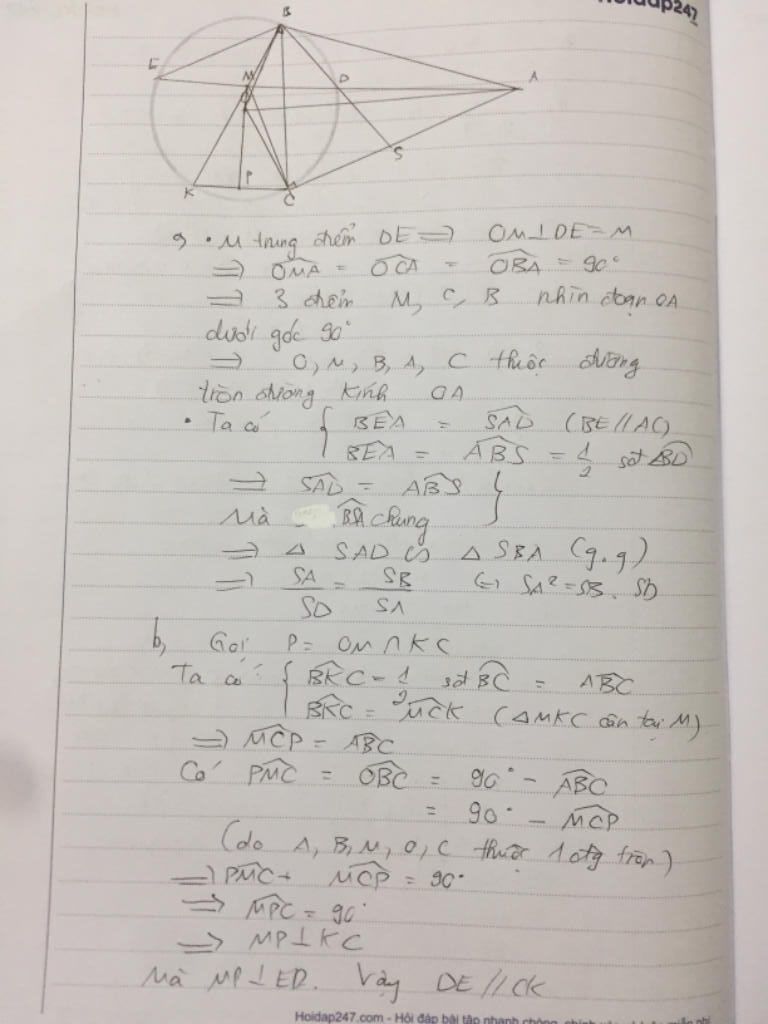 Hoidap247
B
E
M
D
A
O
S
K
P
C
• M trung điểm DE ⟹ OM⊥DE = M
⟹ \widehat{OMA} = \widehat{OCA} = \widehat{OBA} = 90°
⟹ 3 điểm M, C, B nhìn đoạn OA
dưới góc 90°
⟹ O, M, B, A, C thuộc đường
tròn đường kính OA
• Ta có { \widehat{BEA} = \widehat{SAD} (BE//AC)
\widehat{BEA} = \widehat{ABS} = 1/2 sđ \overset{⌢}{BD}
⟹ \widehat{SAD} = \widehat{ABS} }
Mà chung
⟹ Δ SAD ∽ Δ SBA (g.g)
⟹ SA/SD = SB/SA ⟺ SA² = SB. SD
b, Gọi P = OM ∩ KC
Ta có: { \widehat{BKC} = 1/2 sđ \overset{⌢}{BC} = \widehat{ABC}
\widehat{BKC} = \widehat{MCK} (ΔMKC cân tại M)
⟹ \widehat{MCP} = \widehat{ABC}
Có \widehat{PMC} = \widehat{OBC} = 90° - \widehat{ABC}
= 90° - \widehat{MCP}
(do A, B, M, O, C thuộc 1 đtg tròn)
⟹ \widehat{PMC} + \widehat{MCP} = 90°
⟹ \widehat{MPC} = 90°
⟹ MP⊥KC
Mà MP⊥ED. Vậy DE//CK
Hoidap247.com - Hỏi đáp bài tập nhanh chóng, chính xác và